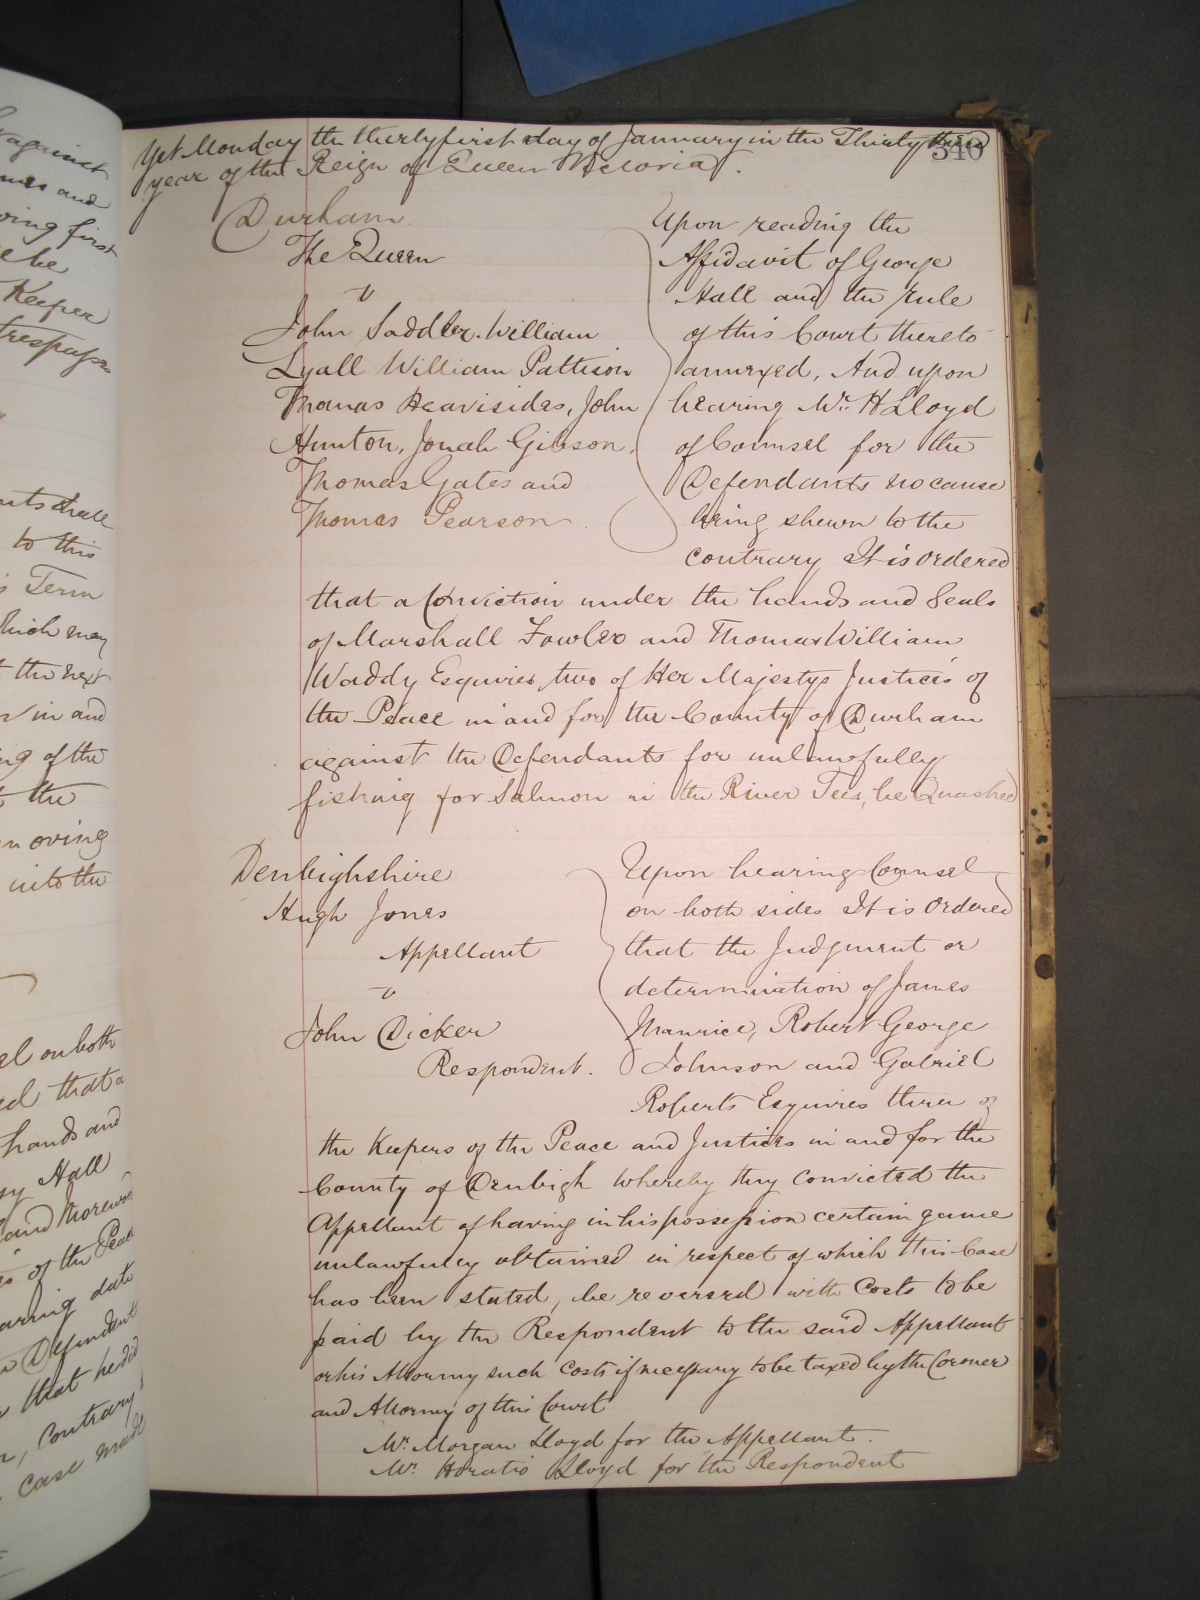 Yet Monday the thirtyfirst day of January in the Thirty third
340
year of the Reign of Queen Victoria.
Durham.
The Queen
v
John Saddler. William
Lyall William Pattison
Thomas Heavisides, John
Hunton, Jonah Gibson,
Thomas Gates and
Thomas Pearson.
Upon reading the
Affidavit of George
Hall and the rule
of this Court thereto
annexed, And upon
hearing Mr. H Lloyd
of Counsel for the
Defendants no cause
being shewn to the
contrary It is ordered
that a Conviction under the hands and Seals
of Marshall Fowler and Thomas William
Waddy Esquires two of Her Majestys Justices of
the Peace in and for the County of Durham
against the Defendants for unlawfully
fishing for Salmon in the River Tees, be Quashed
Denbighshire
Hugh Jones
Appellant
v
John Dicker
Respondent.
Upon hearing Counsel
on both sides It is Ordered
that the Judgment or
determination of James
Maurice, Robert George
Johnson and Gabriel
Roberts Esquires three of
the Keepers of the Peace and Justices in and for the
County of Denbigh whereby they convicted the
Appellant of having in his possession certain game
unlawfully obtained in respect of which this Case
has been stated, be reversed with Costs to be
paid by the Respondent to the said Appellant
or his Attorney such Costs if necessary to be taxed by the Coroner
and Attorney of this Court
Mr. Morgan Lloyd for the Appellant.
Mr. Horatio Lloyd for the Respondent
against
and
ving first
be
Keeper
trespass
nts shall
to this
Term
which may
t the next
in and
ng of the
the
moving
into the
el on both
ed that a
hands and
Hall
and
of the Peace
earing date
Defendant
that he did
, Contrary
Case made